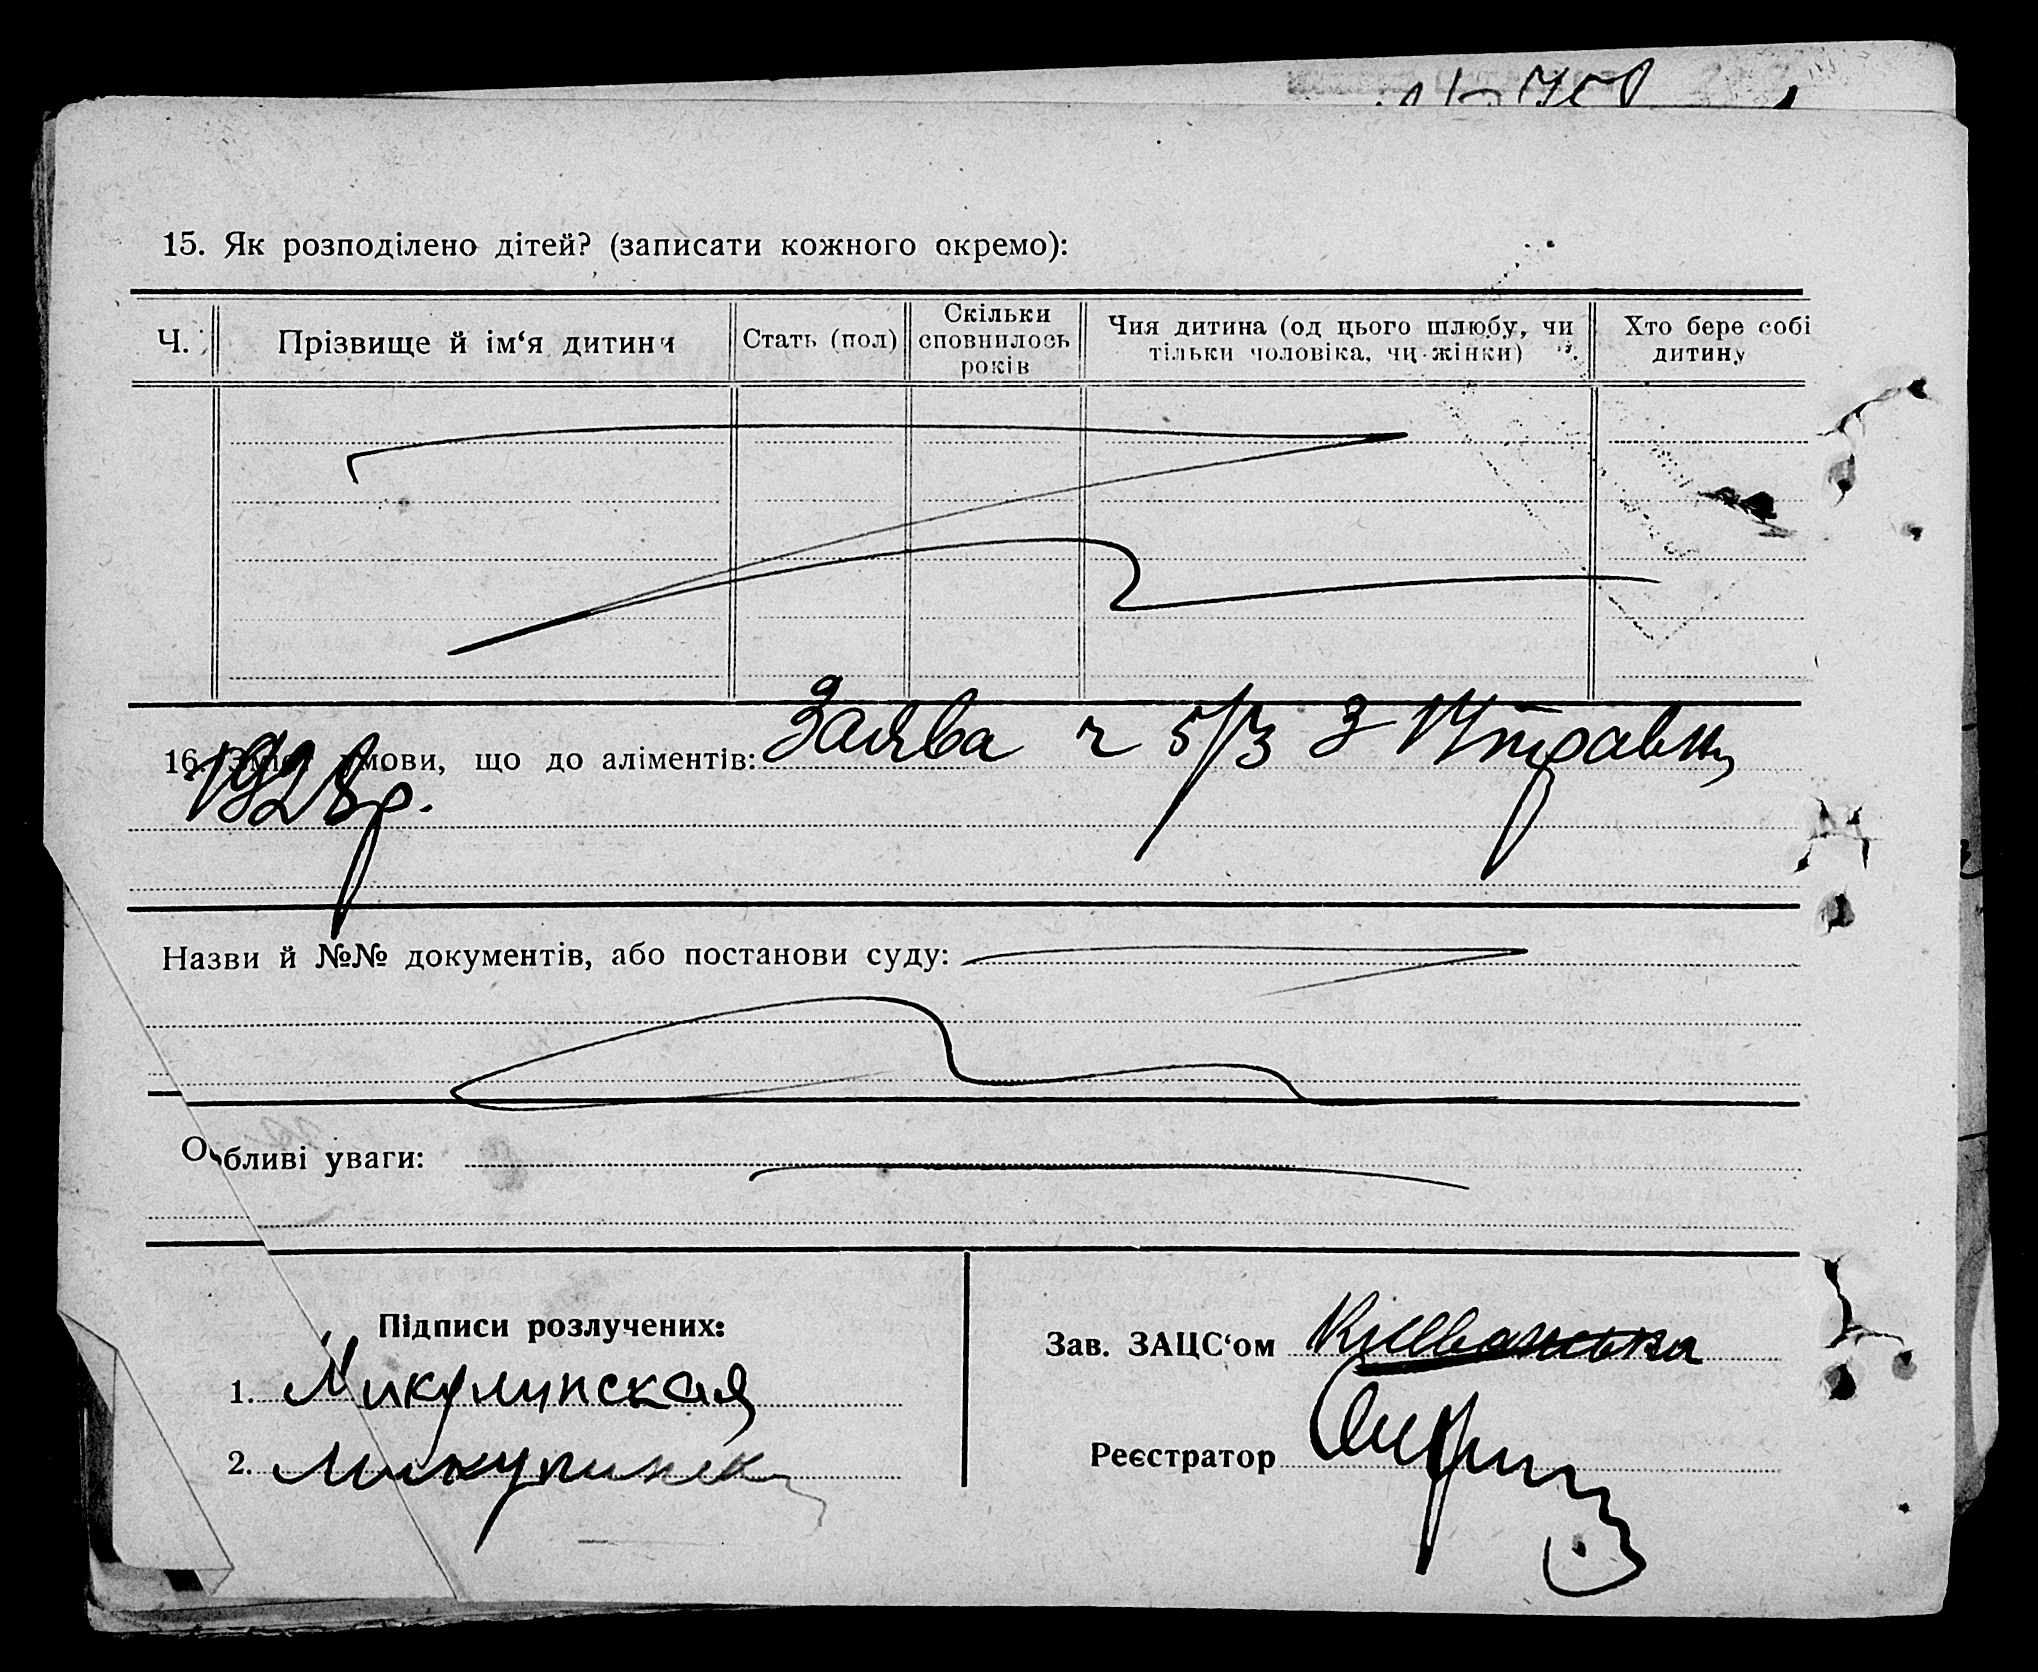 15. Як розподілено дітей? (записати кожного окремо):
Ч.
Прізвище й ім‘я дитини
Стать (пол)
Скільки
сповнилось
років
Чия дитина (од цього шлюбу, чи
тільки чоловіка, чи жінки)
Хто бере собі
дитину
16. Зміс умови, що до аліментів: Заява ч 5/3 З травня
1928 р.
Назви й №№ документів, або постанови суду:
Особливі уваги:
Підписи розлучених:
1. Микулинская
2.
Зав. ЗАЦС‘ом
Реєстратор